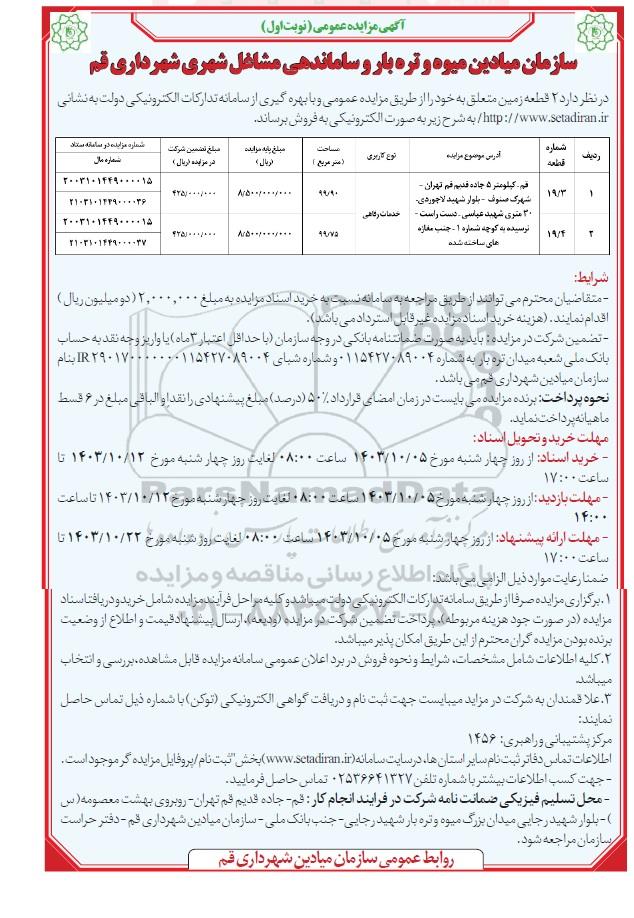 آگهی مزایده عمومی (نوبت اول)
سازمان میادین میوه و تره بار و ساماندهی مشاغل شهری شهرداری قم
در نظر دارد ۲ قطعه زمین متعلق به خود را از طریق مزایده عمومی و با بهره گیری از سامانه تدارکات الکترونیکی دولت به نشانی
http://www.setadiran.ir/ به شرح زیر به صورت الکترونیکی به فروش برساند.
ردیف | شماره قطعه | آدرس موضوع مزایده | نوع کاربری | مساحت (متر مربع) | مبلغ پایه مزایده (ریال) | مبلغ تضمین شرکت در مزایده (ریال) | شماره مزایده در سامانه ستاد
شماره مال
۱ | ۱۹/۳ | ۹۹/۹۰ | ۸/۵۰۰/۰۰۰/۰۰۰ | ۴۲۵/۰۰۰/۰۰۰ | ۲۰۰۳۱۰۱۴۴۹۰۰۰۰۱۵
۲۱۰۳۱۰۱۴۴۹۰۰۰۰۳۶
۲ | ۱۹/۴ | ۹۹/۷۵ | ۸/۵۰۰/۰۰۰/۰۰۰ | ۴۲۵/۰۰۰/۰۰۰ | ۲۰۰۳۱۰۱۴۴۹۰۰۰۰۱۵
۲۱۰۳۱۰۱۴۴۹۰۰۰۰۳۷
قم - کیلومتر ۵ جاده قدیم قم تهران -
شهرک صنوف - بلوار شهید لاجوردی-
۳۰ متری شهید عباسی - دست راست -
نرسیده به کوچه شماره ۱ - جنب مغازه
های ساخته شده
خدمات رفاهی
شرایط:
- متقاضیان محترم می توانند از طریق مراجعه به سامانه نسبت به خرید اسناد مزایده به مبلغ ۲,۰۰۰,۰۰۰ (دو میلیون ریال)
اقدام نمایند. (هزینه خرید اسناد مزایده غیر قابل استرداد می باشد).
- تضمین شرکت در مزایده : باید به صورت ضمانتنامه بانکی در وجه سازمان (با حداقل اعتبار ۳ ماه) یا واریز وجه نقد به حساب
بانک ملی شعبه میدان تره بار به شماره ۰۱۱۵۴۲۷۰۸۹۰۰۴ و شماره شبای IR۲۹۰۱۷۰۰۰۰۰۰۰۱۱۵۴۲۷۰۸۹۰۰۴ بنام
سازمان میادین شهرداری قم می باشد.
نحوه پرداخت: برنده مزایده می بایست در زمان امضای قرارداد ۵۰٪ (درصد) مبلغ پیشنهادی را نقدا و الباقی مبلغ در ۶ قسط
ماهیانه پرداخت نماید.
مهلت خرید و تحویل اسناد:
- خرید اسناد: از روز چهار شنبه مورخ ۱۴۰۳/۱۰/۰۵ ساعت ۰۸:۰۰ لغایت روز چهار شنبه مورخ ۱۴۰۳/۱۰/۱۲ تا
ساعت ۱۷:۰۰
- مهلت بازدید: از روز چهار شنبه مورخ ۱۴۰۳/۱۰/۰۵ ساعت ۰۸:۰۰ لغایت روز چهار شنبه مورخ ۱۴۰۳/۱۰/۱۲ تا ساعت
۱۴:۰۰
- مهلت ارائه پیشنهاد: از روز چهار شنبه مورخ ۱۴۰۳/۱۰/۰۵ ساعت ۰۸:۰۰ لغایت روز شنبه مورخ ۱۴۰۳/۱۰/۲۲ تا
ساعت ۱۷:۰۰
ضمنا رعایت موارد ذیل الزامی می باشد:
۱. برگزاری مزایده صرفا از طریق سامانه تدارکات الکترونیکی دولت میباشد و کلیه مراحل فرآیند مزایده شامل خرید و دریافت اسناد
مزایده (در صورت جود هزینه مربوطه)، پرداخت تضمین شرکت در مزایده (ودیعه)، ارسال پیشنهاد قیمت و اطلاع از وضعیت
برنده بودن مزایده گران محترم از این طریق امکان پذیر میباشد.
۲. کلیه اطلاعات شامل مشخصات، شرایط و نحوه فروش در برد اعلان عمومی سامانه مزایده قابل مشاهده، بررسی و انتخاب
میباشد.
۳. علاقمندان به شرکت در مزاید میبایست جهت ثبت نام و دریافت گواهی الکترونیکی (توکن) با شماره ذیل تماس حاصل
نمایند:
مرکز پشتیبانی و راهبری: ۱۴۵۶
اطلاعات تماس دفاتر ثبت نام سایر استان ها، در سایت سامانه (www.setadiran.ir) بخش "ثبت نام / پروفایل مزایده گر موجود است.
- جهت کسب اطلاعات بیشتر با شماره تلفن ۰۲۵۳۶۶۴۱۳۲۷ تماس حاصل فرمایید.
- محل تسلیم فیزیکی ضمانت نامه شرکت در فرایند انجام کار : قم- جاده قدیم قم تهران- روبروی بهشت معصومه( س
)- بلوار شهید رجایی میدان بزرگ میوه و تره بار شهید رجایی- جنب بانک ملی - سازمان میادین شهرداری قم - دفتر حراست
سازمان مراجعه شود.
روابط عمومی سازمان میادین شهرداری قم
ParsNamadData
پایگاه اطلاع رسانی مناقصه و مزایده